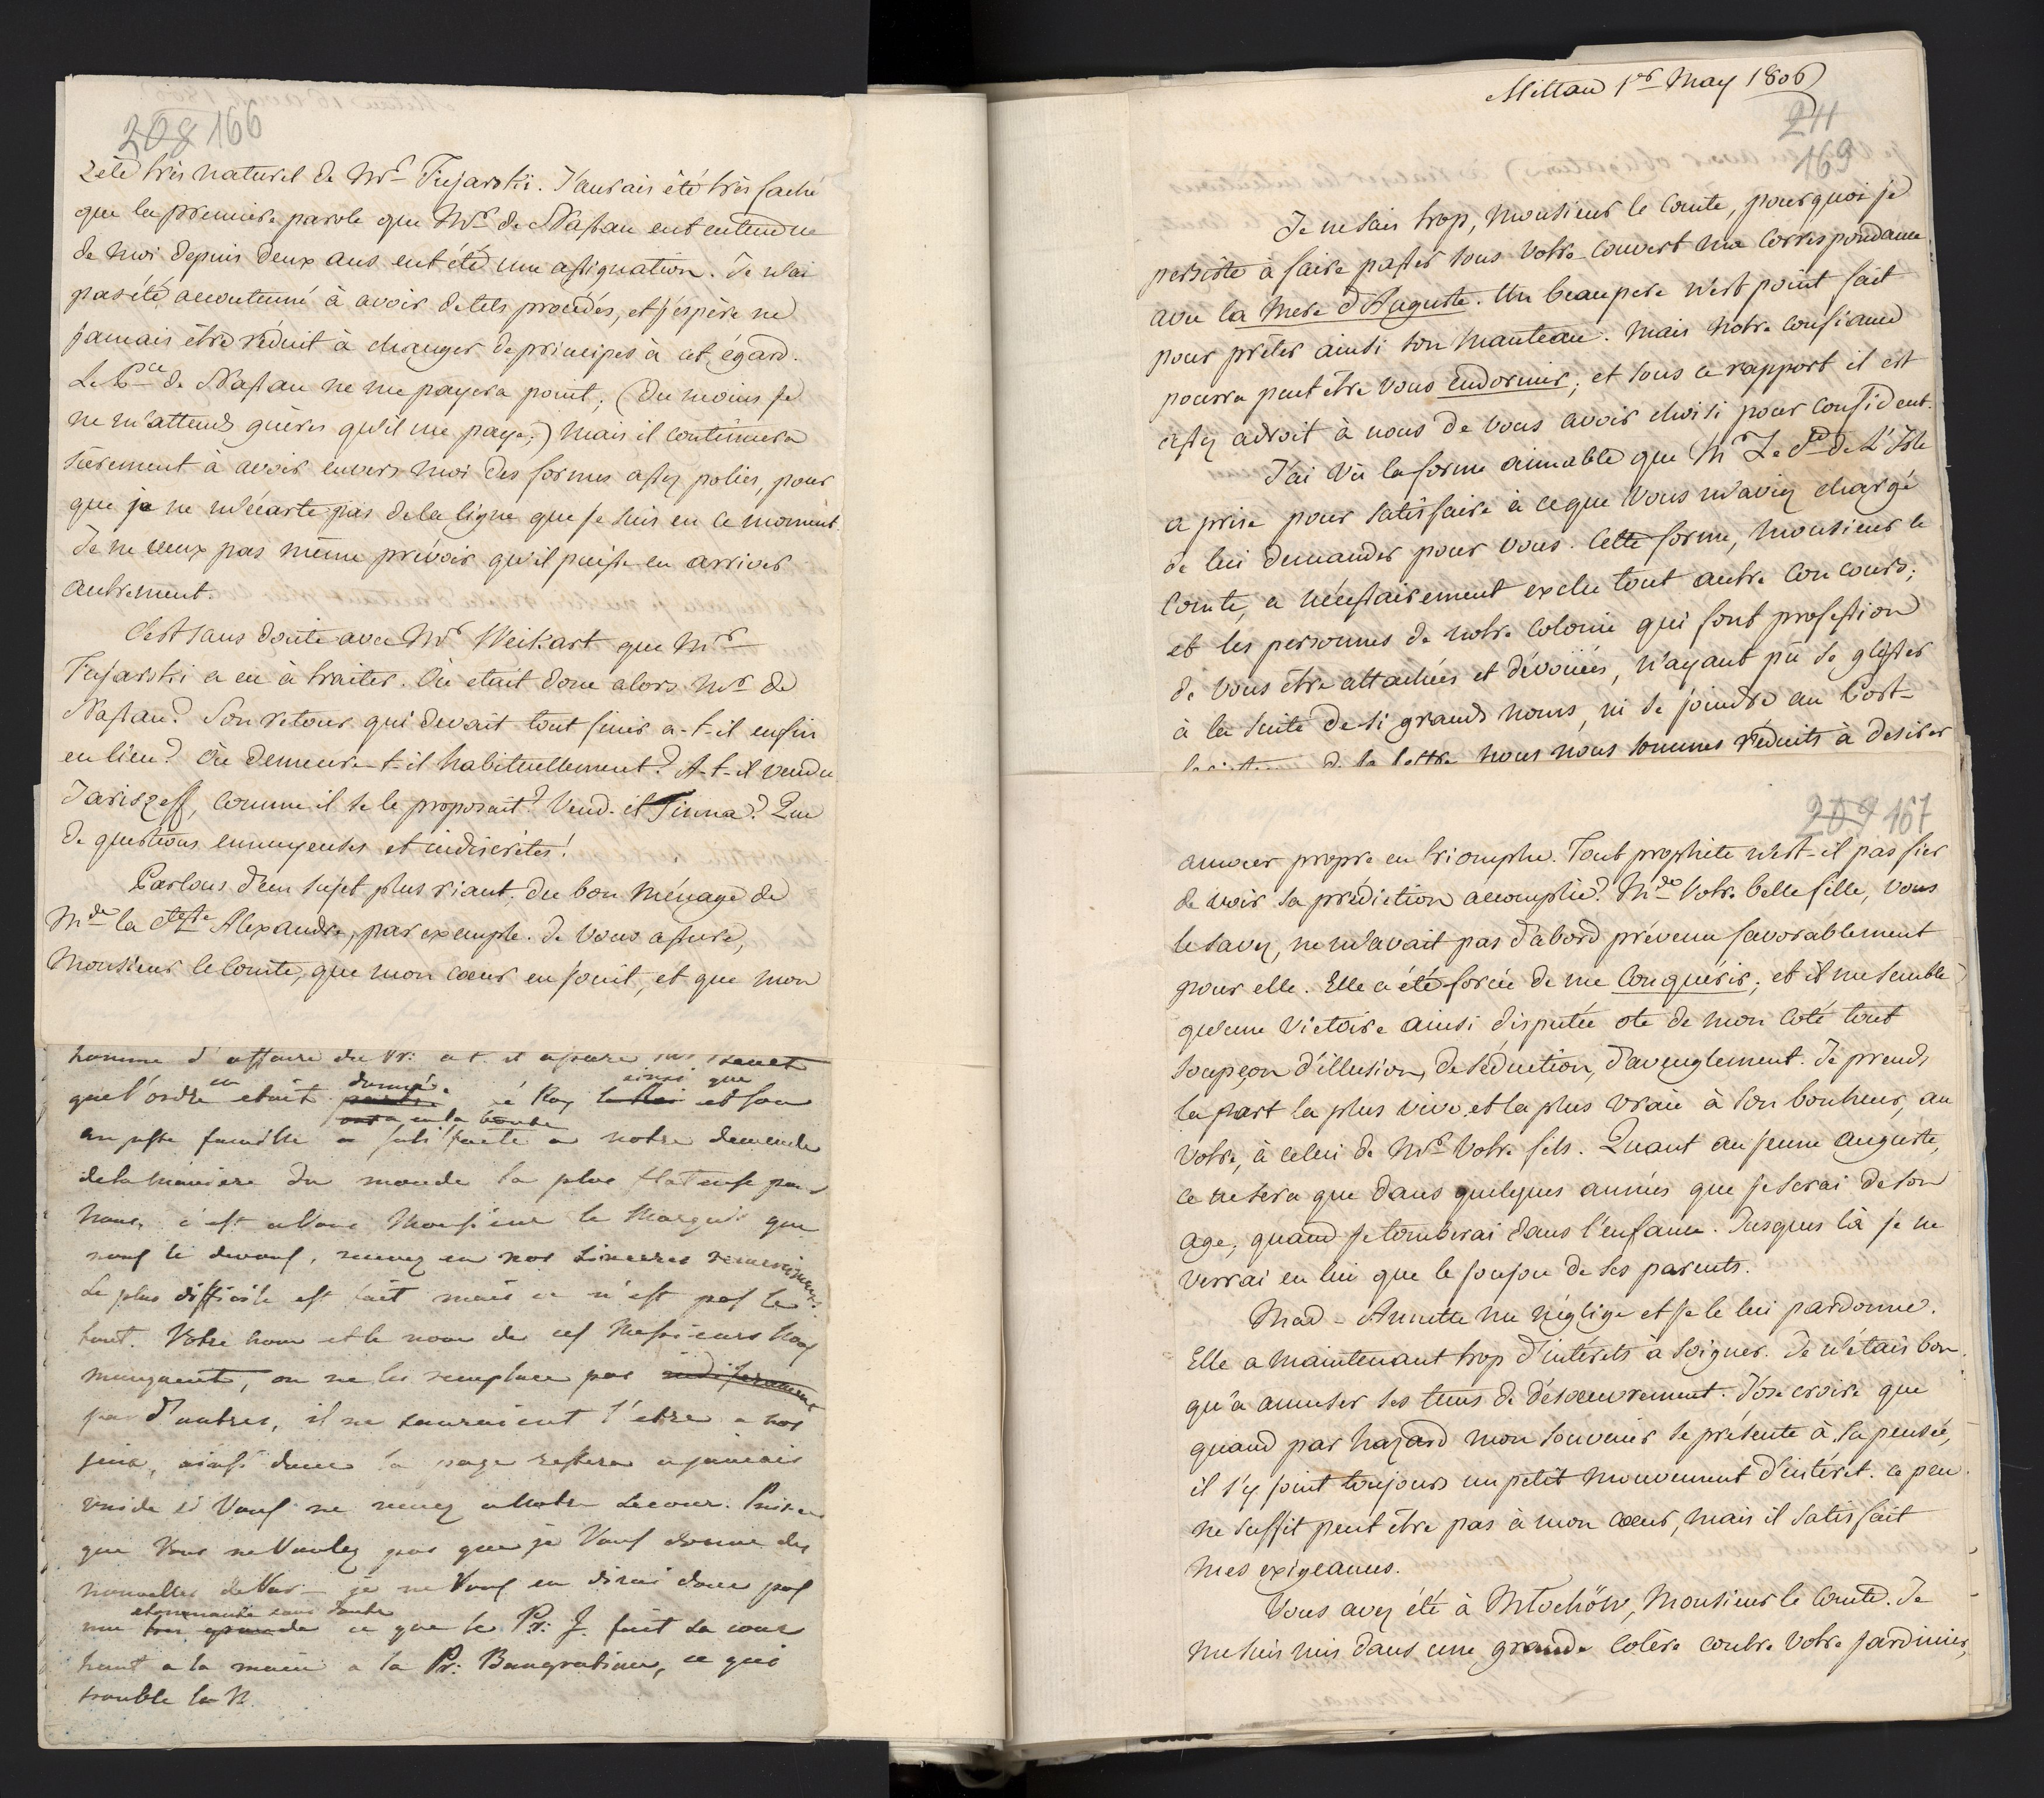 208 166
zèle très naturel de Mr. Tujarski. J'aurais été très faché
que la premiere parole que Mr. de Nassau eut entendue
de moi depuis deux ans eut été une assignation. Je n'ai
pas été accoutumé à avoir de tels procédés, et j'espère ne
jamais être réduit à changer de principes à cet égard.
Le Pce de Nassau ne me payera point; (du moins je
ne m'attends guères qu'il me paye;) mais il continuera
sûrement à avoir envers moi des formes assez polies, pour
que je ne m'écarte pas de la ligne que je suis en ce moment.
Je ne veux pas même prévoir qu'il puisse en arriver
autrement.
C'est sans doute avec Mr Weikart que Mr
Tujarski a eu à traiter. Où etait donc alors Mr de
Nassau? Son retour qui devait tout finir a-t-il enfin
eu lieu? Où demeure-t-il habituellement? A-t-il vendu
Jariszeff, comme il se le proposait? Vend-il Tinna? Que
de questions ennuyeuses et indiscrètes!
Parlons d'un sujet plus riant; du bon ménage de
Mde la Ctesse Alexandre, par exemple. Je vous assure,
Monsieur le Comte, que mon cœur en jouit, et que mon
homme d'affaire du Pr:
que l'ordre en etait donné. ainsi que
le Roi et son
auguste famille a satisfaite a notre demende
de la maniere du monde la plus flateuse pour
nous, c'est a Vous Monsieur le Marquis que
nous le devons, recevez en nos sinceres remerciemens.
Le plus difficile est fait mais ce n'est pas le
tout. Votre nom et le nom de ces Messieurs nous
manquent, on ne les remplace pas indiferament
par d'autres, il ne sauraient l'etre a nos
yeux, ainsi donc la page restera a jamais
vuide si Vous ne venez a notre secour. Puisque
que Vous ne Voulez pas que je Vous donne des
nouvelles de Var- je ne Vous en dirai donc pas
etonnante sans doute
une bien grande ce que le Pr: J. fait sa cour
haut a la main a la Pr: Baugration, ce qui
trouble la N.
Mittau 1er May 1806
211
169
Je ne sais trop, Monsieur le Comte, pourquoi je
persiste à faire passer sous votre couvert ma correspondance
avec la Mere d'Auguste. Un beaupere n'est point fait
pour prêter ainsi son manteau. Mais notre confiance
pourra peut être vous endormir; et sous ce rapport il est
assez adroit à nous de vous avoir choisi pour confident.
J'ai vû la forme aimable que Mr Le Cd de L'Isle
a prise pour satisfaire à ce que vous m'aviez chargé
de lui demander pour vous. Cette forme, Monsieur le
Comte, a nécessairement exclu tout autre concours;
et les personnes de notre colonie qui font profession
de vous être attachées et dévouées, n'ayant pû se glisser
à la suite de si grands noms, ni se joindre au Post-
de la lettre nous nous sommes réduits à desirer
209 167
amour propre en triomphe. Tout prophete n'est-il pas fier
de voir sa prédiction accomplie? Mde Votre belle fille, vous
le savez, ne m'avait pas d'abord prévenu favorablement
pour elle. Elle a été forcée de me conquérir; et il me semble
qu'une victoire ainsi disputée ote de mon coté tout
soupçon d'illusion, de séduction, d'aveuglement. Je prends
la part la plus vive et la plus vraie à son bonheur, au
votre, à celui de Mr Votre fils. Quant au jeune Auguste,
ce ne sera que dans quelques années que je serai de son
age; quand je tomberai dans l'enfance. Jusques là je ne
verrai en lui que le joujou de ses parents.
Mad- Annette me néglige et je le lui pardonne.
Elle a maintenant trop d'intérêts à soigner. Je n'étais bon
qu'à amuser ses tems de désœuvrement. J'ose croire que
quand par hazard mon souvenir se présente à sa pensée,
il s'y joint toujours un petit mouvement d'intérêt. Ce peu
ne suffit peut être pas à mon cœur, mais il satisfait
mes exigeances.
Vous avez été à Mlochöw, Monsieur le Comte. Je
me suis mis dans une grande colère contre votre jardinier,